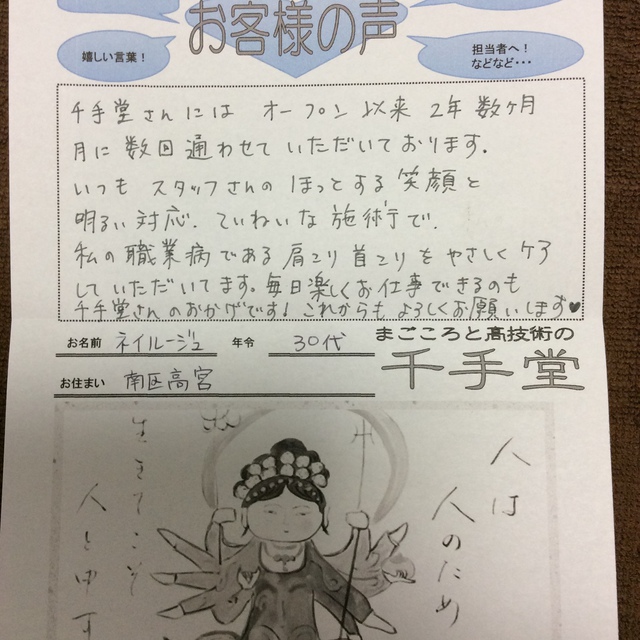 お客様の声
嬉しい言葉！
担当者へ！
などなど・・・
千手堂さんには オープン以来 2年数ヶ月
月に数回通わせていただいております。
いつも スタッフさんの ほっとする 笑顔と
明るい対応、ていねいな施術で、
私の職業病である肩こり首こりをやさしくケア
していただいてます。毎日楽しくお仕事できるのも
千手堂さんのおかげです！これからもよろしくお願いします♥
お名前 ネイルージュ 年令 30代
まごころと高技術の
千手堂
お住まい 南区高宮
人は
人のため
生きてこそ
人と申す